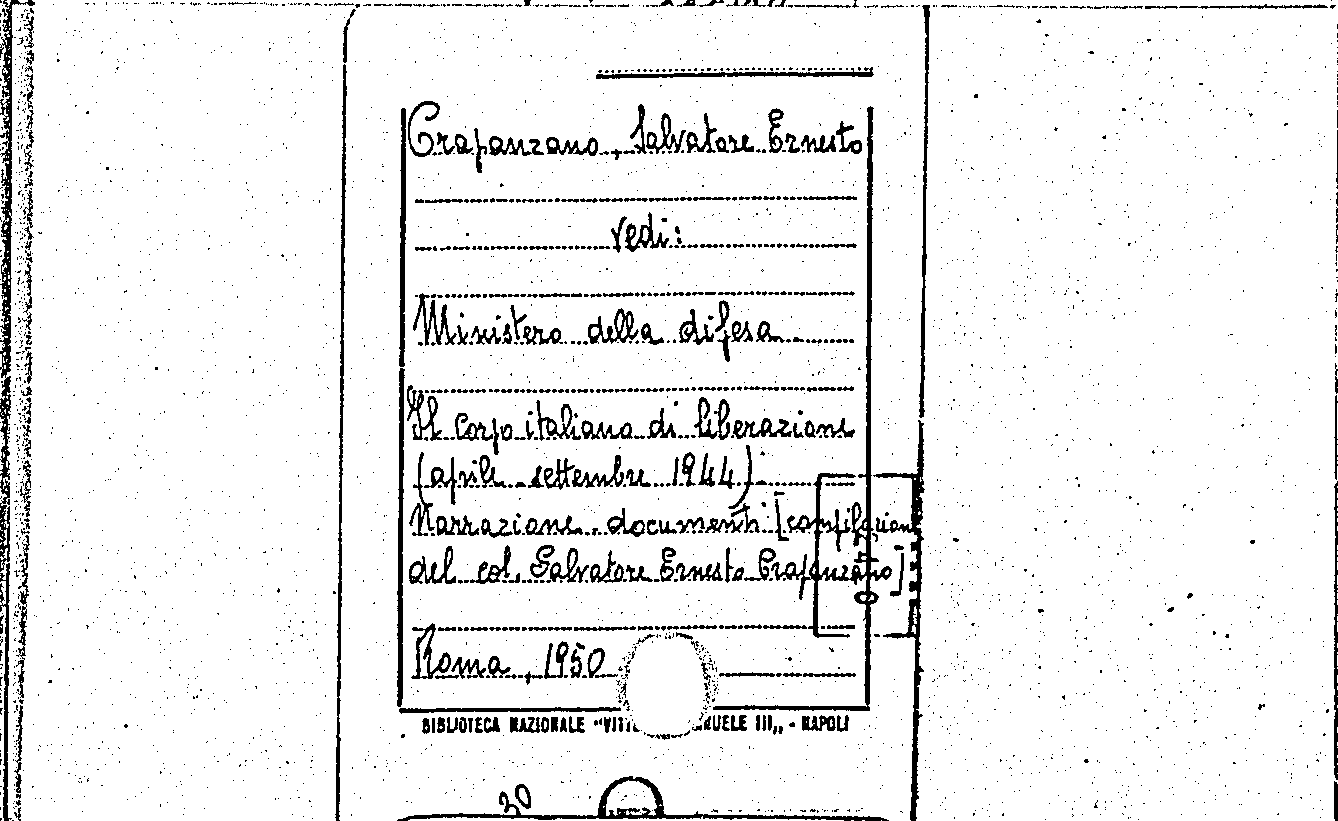 Crapanzano, Salvatore Ernesto
vedi:
Ministero della difesa
Il corpo italiano di liberazione
(aprile - settembre 1944).
Narrazione documenti [compilazione
del col. Salvatore Ernesto Crapanzano]
Roma, 1950
BIBLIOTECA NAZIONALE "VITT RUELE III„ - NAPOLI
30